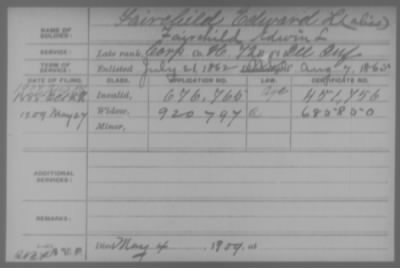 Fairfield, Edward L (alias)
NAME OF SOLDIER: Fairchild Edwin L
SERVICE: Late rank, Corp Co. H, 72 Ill Inf
TERM OF SERVICE: Enlisted July 21, 1862 Aug 7, 1865
DATE OF FILING. CLASS. APPLICATION NO. LAW. CERTIFICATE NO.
Invalid, 676,766 451,756
1909 May 27 Widow, 920,797 685850
Minor,
ADDITIONAL SERVICES:
REMARKS:
Died May 4 1909, at